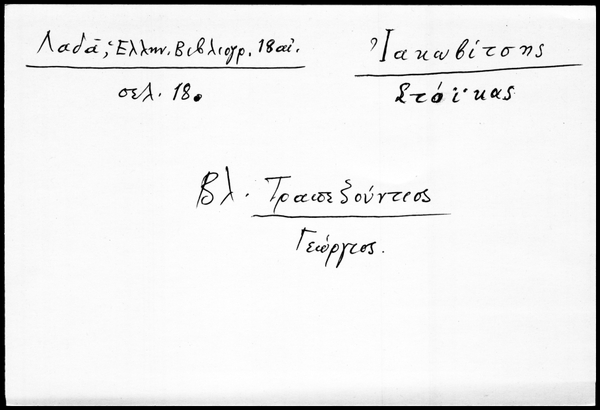 Λαδᾶ, Ἑλλην. Βιβλιογρ. 18 αἰ.
σελ. 18.
Ἰακωβίτσης
Στόϊκας
Βλ. Τραπεζούντιος
Γεώργιος.